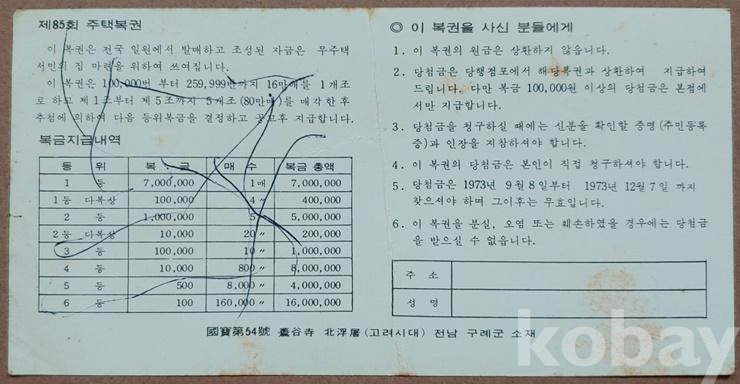 제85회 주택복권
이 복권은 전국 일원에서 발매하고 조성된 자금은 무주택
서민의 집 마련을 위하여 쓰여집니다.
이 복권은 100,000번 부터 259,999번까지 16만매를 1개조
로 하고 제1조부터 제5조까지 5개조 (80만매)를 매각한 후
추첨에 의하여 다음 등위복권을 결정하고 공고후 지급합니다.
복금지급내역
등 위 복 금 매 수 복금 총액
1 등 7,000,000 1매 7,000,000
1등 다복상 100,000 4〃 400,000
2 등 1,000,000 5〃 5,000,000
2등 다복상 10,000 20〃 200,000
3 등 100,000 10〃 1,000,000
4 등 10,000 800〃 8,000,000
5 등 500 8,000〃 4,000,000
6 등 100 160,000〃 16,000,000
◎ 이 복권을 사신 분들에게
1. 이 복권의 원금은 상환하지 않읍니다.
2. 당첨금은 당행점포에서 해당복권과 상환하여 지급하여
드립니다. 다만 복금 100,000원 이상의 당첨금은 본점에
서만 지급합니다.
3. 당첨금을 청구하실 때에는 신분을 확인할 증명(주민등록
증)과 인장을 지참하셔야 합니다.
4. 이 복권의 당첨금은 본인이 직접 청구하셔야 합니다.
5. 당첨금은 1973년 9월 8일부터 1973년 12월 7일 까지
찾으셔야 하며 그이후는 무효입니다.
6. 이 복권을 분실, 오염 또는 훼손하였을 경우에는 당첨금
을 받으실 수 없읍니다.
주 소
성 명
國寶第54號 鷰谷寺 北浮屠(고려시대) 전남 구례군 소재
kobay